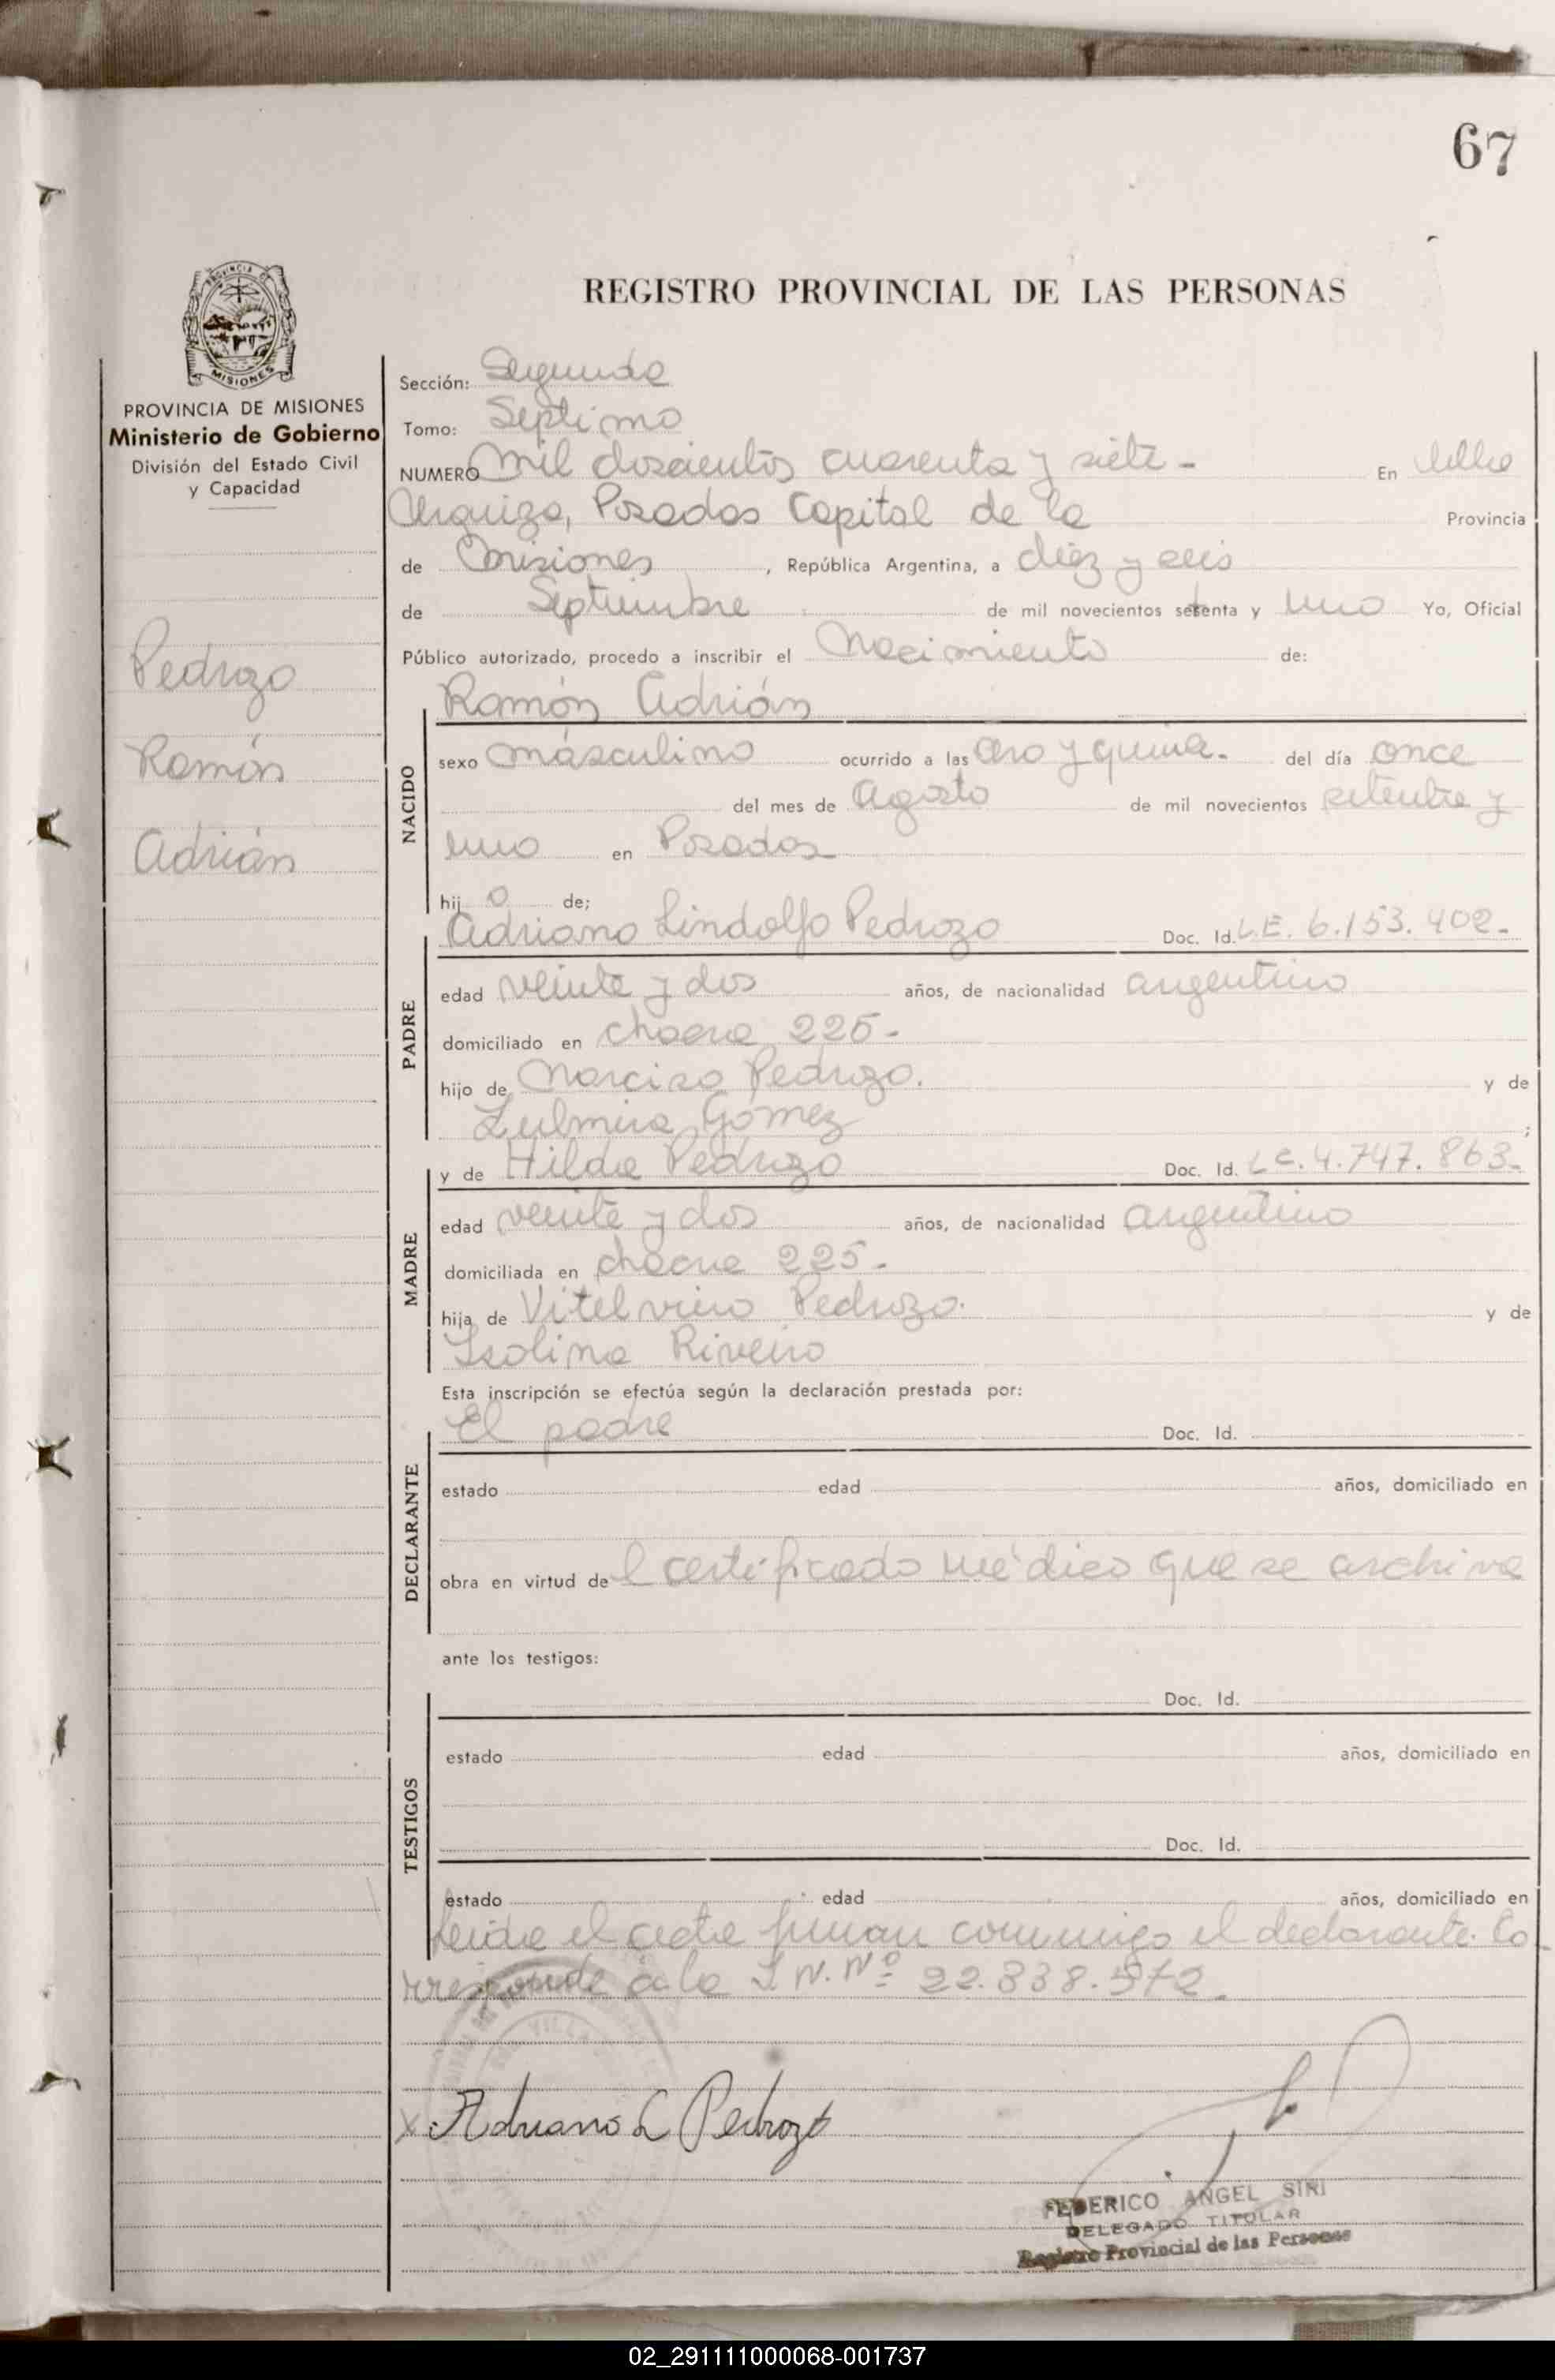 67
REGISTRO PROVINCIAL DE LAS PERSONAS
PROVINCIA DE MISIONES
Ministerio de Gobierno
División del Estado Civil
y Capacidad
Pedrozo
Ramón
Adrián
Sección: Segunda
Tomo: Septimo
NUMERO Mil doscientos cuarenta y siete - En Villa
Urquiza, Posadas Capital de la Provincia
de Misiones, República Argentina, a diez y seis
de Septiembre de mil novecientos setenta y uno Yo, Oficial
Público autorizado, procedo a inscribir el Nacimiento de:
NACIDO
Ramón Adrián
sexo másculino ocurrido a las cero y quince. del día once
del mes de Agosto de mil novecientos setenta y
uno en Posadas
hijo de;
PADRE
Adriano Lindolfo Pedrozo Doc. Id. L.E. 6.153.402-
edad veinte y dos años, de nacionalidad argentino
domiciliado en chacra 225-
hijo de Narciso Pedrozo. y de
Zulmira Gomez;
MADRE
y de Hilda Pedrozo Doc. Id. L.C. 4.747.863-
edad veinte y dos años, de nacionalidad argentino
domiciliada en chacra 225-
hija de Vitelvino Pedrozo. y de
Isolina Riveiro
Esta inscripción se efectúa según la declaración prestada por:
DECLARANTE
El padre Doc. Id.
estado edad años, domiciliado en
obra en virtud del certificado médico que se archiva
ante los testigos:
TESTIGOS
Doc. Id.
estado edad años, domiciliado en
Doc. Id.
estado edad años, domiciliado en
Leida el acta firman conmigo el declarante. Co-
rresponde a la I.N. Nº 22.838.572-
X Adriano L Pedrozo
FEDERICO ANGEL SIRI
DELEGADO TITULAR
Registro Provincial de las Personas
02_291111000068-001737